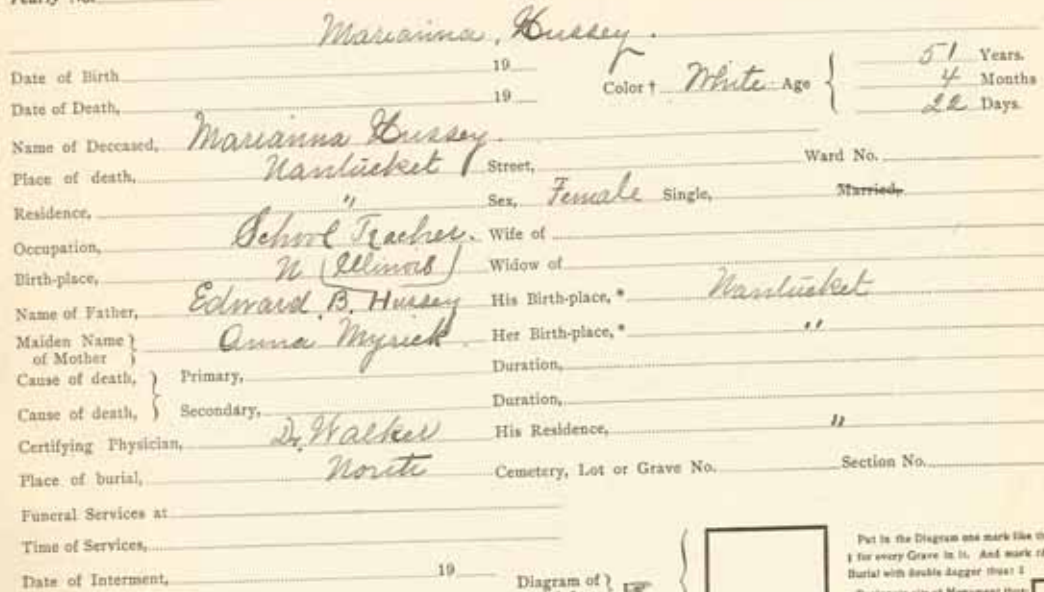 Yearly No.
Marianna, Hussey.
Date of Birth 19 Color † White Age { 51 Years.
4 Months
Date of Death, 19 22 Days.
Name of Deceased, Marianna Hussey.
Place of death, Nantucket Street, Ward No.
Residence, " Sex, Female Single, Married,
Occupation, School Teacher. Wife of
Birth-place, N (Illinois) Widow of
Name of Father, Edward. B. Hussey His Birth-place, * Nantucket
Maiden Name of Mother } Anna Myrick. Her Birth-place, * "
Cause of death, } Primary, Duration,
Cause of death, } Secondary, Duration,
Certifying Physician, Dr. Walker His Residence, "
Place of burial, North Cemetery, Lot or Grave No. Section No.
Funeral Services at
Time of Services,
Date of Interment, 19 Diagram of }
Put in the Diagram one mark like th
‡ for every Grave in it. And mark
Burial with double dagger thus: ‡
of Monument thus: